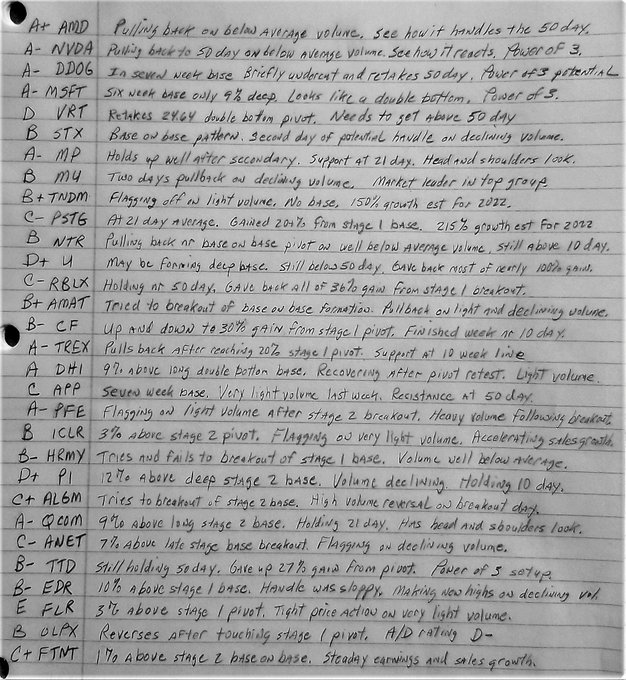 A+ AMD Pulling back on below average volume. See how it handles the 50 day.
A- NVDA Pulling back to 50 day on below average volume. See how it reacts. Power of 3.
A- DDOG In seven week base Briefly undercut and retakes 50 day. Power of 3 potential
A- MSFT Six week base only 9% deep. Looks like a double bottom. Power of 3.
D VRT Retakes 24.64 double bottom pivot. Needs to get above 50 day
B STX Base on base pattern. Second day of potential handle on declining volume.
A- MP Holds up well after secondary. Support at 21 day. Head and shoulders look.
B MU Two days pullback on declining volume. Market leader in top group.
B+ TNDM Flagging off on light volume. No base. 150% growth est for 2022.
C- PSTG At 21 day average. Gained 20+% from stage 1 base. 215% growth est for 2022
B NTR Pulling back nr base on base pivot on well below average volume. Still above 10 day.
D+ U May be forming deep base. Still below 50 day. Gave back most of nearly 100% gain.
C- RBLX Holding nr 50 day. Gave back all of 36% gain from stage 1 breakout.
B+ AMAT Tried to breakout of base on base formation. Pullback on light and declining volume.
B- CF Up and down to 30% gain from stage 1 pivot. Finished week nr 10 day.
A- TREX Pulls back after reaching 20% stage 1 pivot. Support at 10 week line
A DHI 9% above long double bottom base. Recovering after pivot retest. Light volume.
C APP Seven week base. Very light volume last week. Resistance at 50 day.
A- PFE Flagging on light volume after stage 2 breakout. Heavy volume following breakout.
B ICLR 3% above stage 2 pivot. Flagging on very light volume. Accelerating sales growth.
B- HRMY Tries and fails to breakout of stage 1 base. Volume well below average.
D+ PI 12% above deep stage 2 base. Volume declining. Holding 10 day.
C+ ALGM Tries to breakout of stage 2 base. High volume reversal on breakout day.
A- QCOM 9% above long stage 2 base. Holding 21 day. Has head and shoulders look.
C- ANET 7% above late stage base breakout. Flagging on declining volume.
B- TTD Still holding 50 day. Gave up 27% gain from pivot. Power of 3 setup.
B- EDR 10% above stage 1 base. Handle was sloppy. Making new highs on declining vol.
E FLR 3% above stage 1 pivot. Tight price action on very light volume.
B OLPX Reverses after touching stage 1 pivot. A/D rating D-
C+ FTNT 1% above stage 2 base on base. Steaday earnings and sales growth.